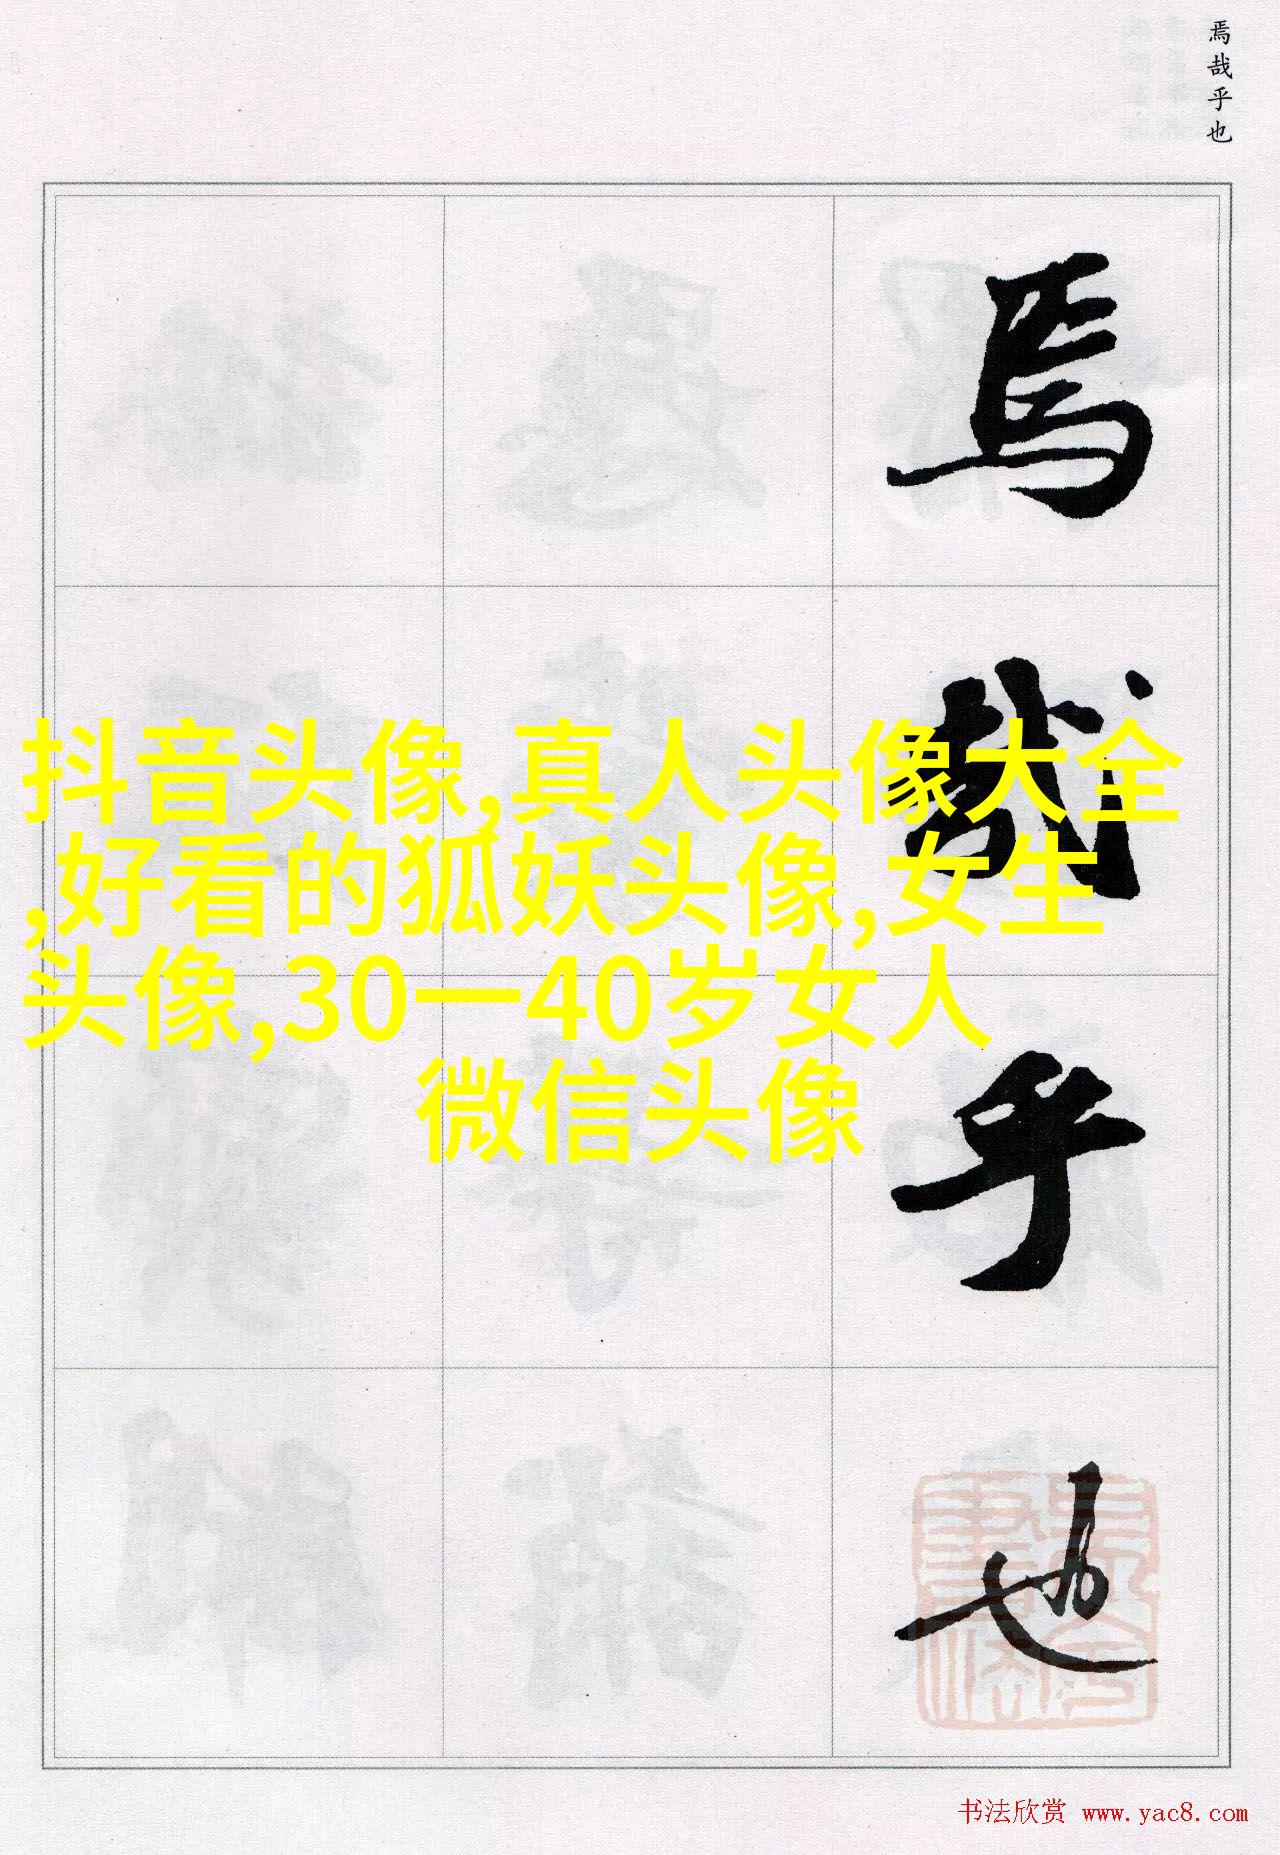 焉哉乎也
焉
哉
乎
也
抖音头像,真人头像大全
,好看的狐妖头像,女生
头像,30一40岁女人
微信头像
书法欣赏 www.yac8.com